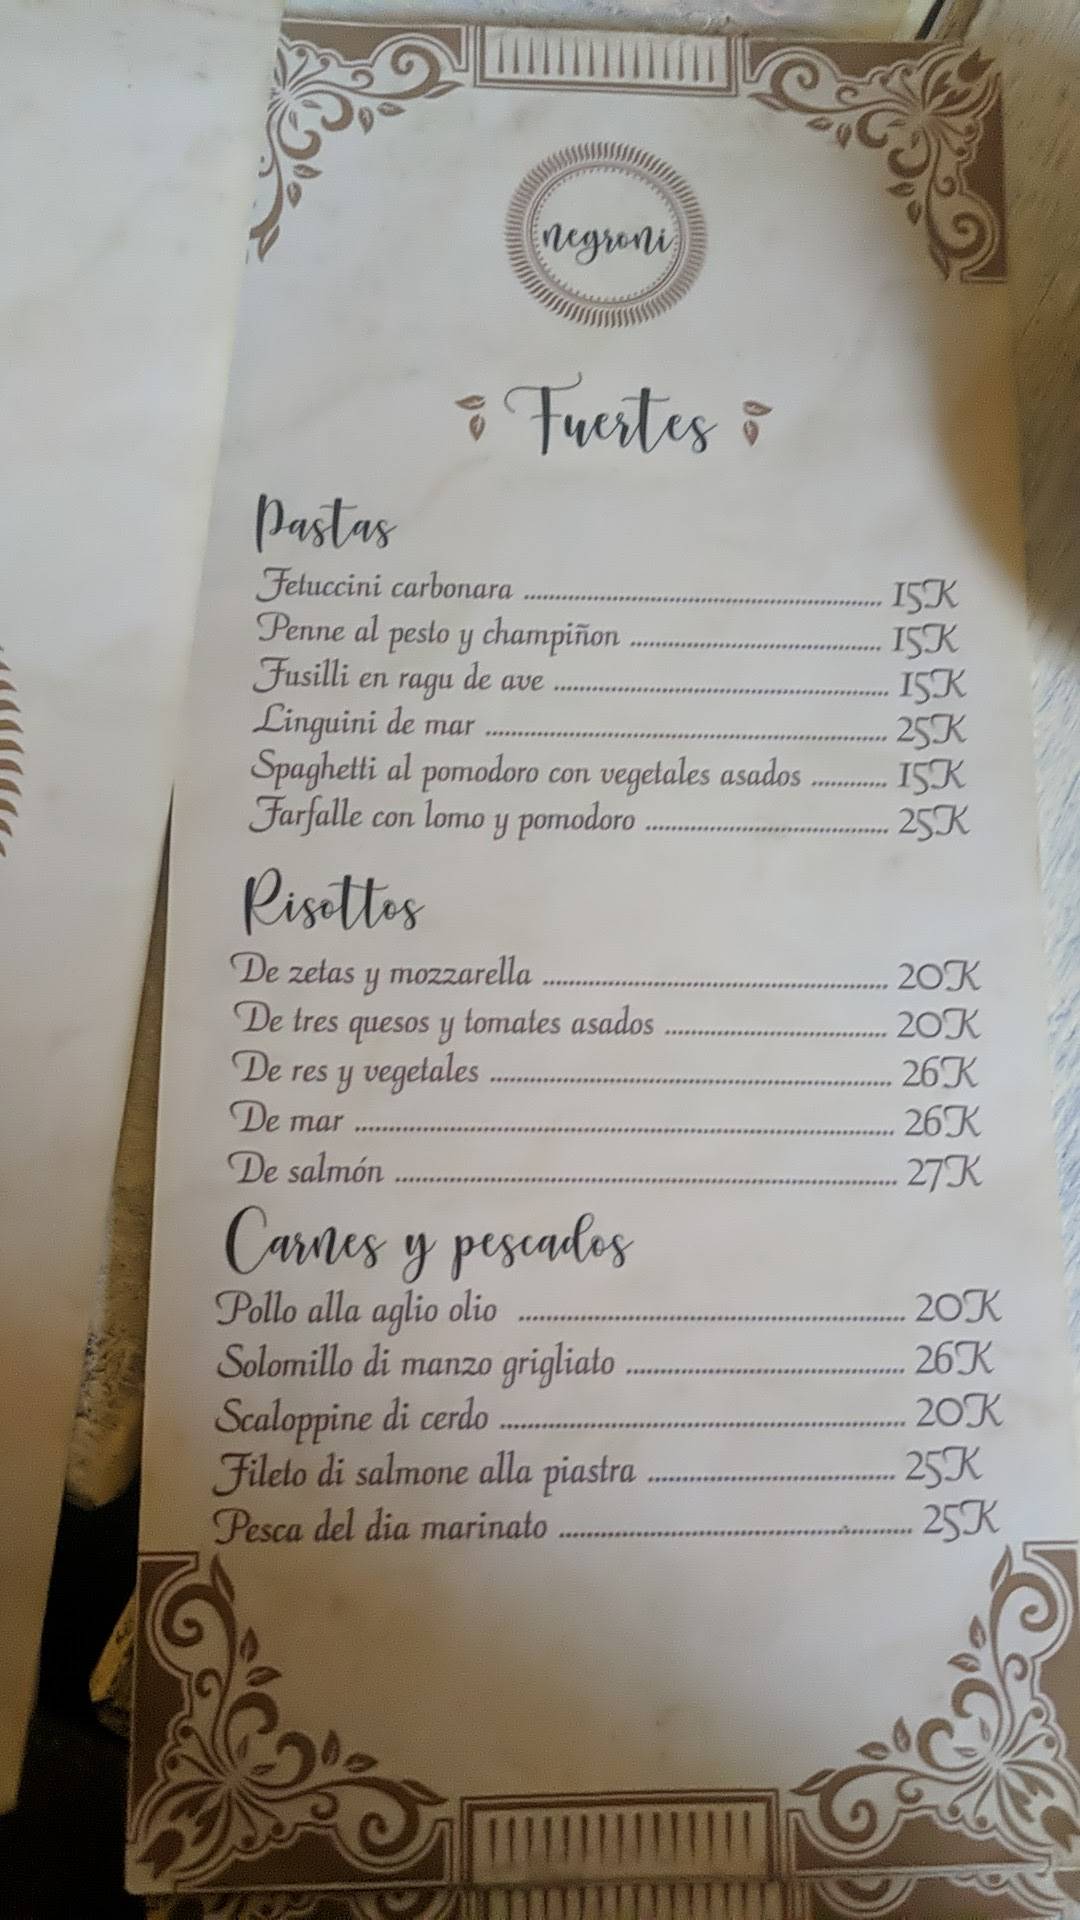 negroni
Fuertes
Pastas
Fetuccini carbonara ........ 15K
Penne al pesto y champiñon ........ 15K
Fusilli en ragu de ave ........ 15K
Linguini de mar ........ 25K
Spaghetti al pomodoro con vegetales asados ........ 15K
Farfalle con lomo y pomodoro ........ 25K
Risottos
De zetas y mozzarella ........ 20K
De tres quesos y tomates asados ........ 20K
De res y vegetales ........ 26K
De mar ........ 26K
De salmón ........ 27K
Carnes y pescados
Pollo alla aglio olio ........ 20K
Solomillo di manzo grigliato ........ 26K
Scaloppine di cerdo ........ 20K
Fileto di salmone alla piastra ........ 25K
Pesca del dia marinato ........ 25K